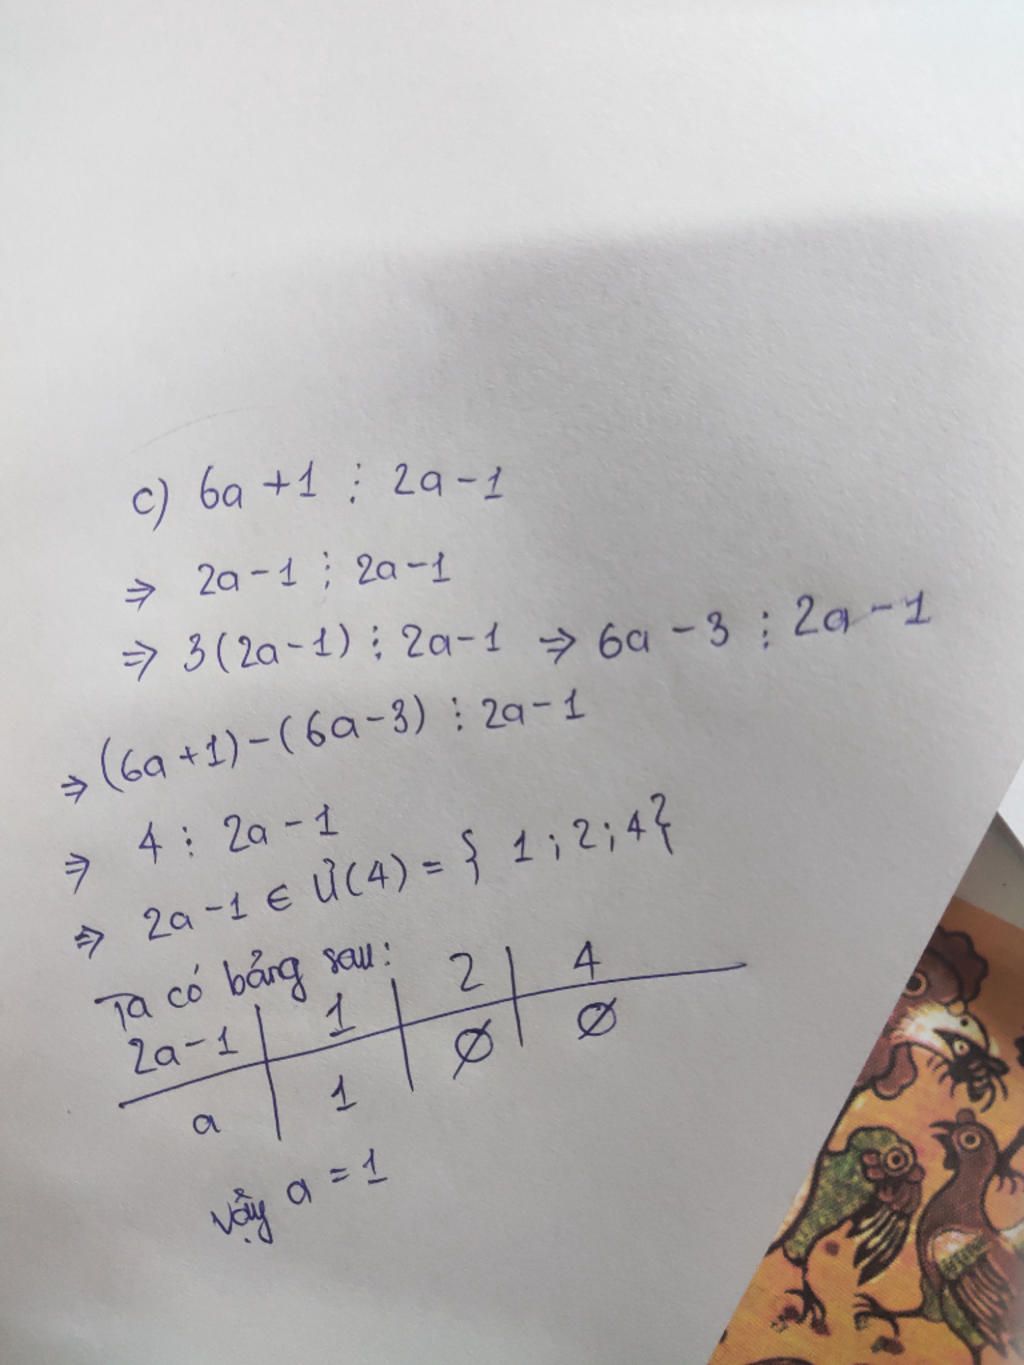 c) 6a + 1 ⋮ 2a - 1
⇒ 2a - 1 ⋮ 2a - 1
⇒ 3(2a - 1) ⋮ 2a - 1 ⇒ 6a - 3 ⋮ 2a - 1
⇒ (6a + 1) - (6a - 3) ⋮ 2a - 1
⇒ 4 ⋮ 2a - 1
⇒ 2a - 1 ∈ Ư(4) = { 1 ; 2 ; 4 }
Ta có bảng sau:
2a - 1 | 1 | 2 | 4
a | 1 | ∅ | ∅
Vậy a = 1